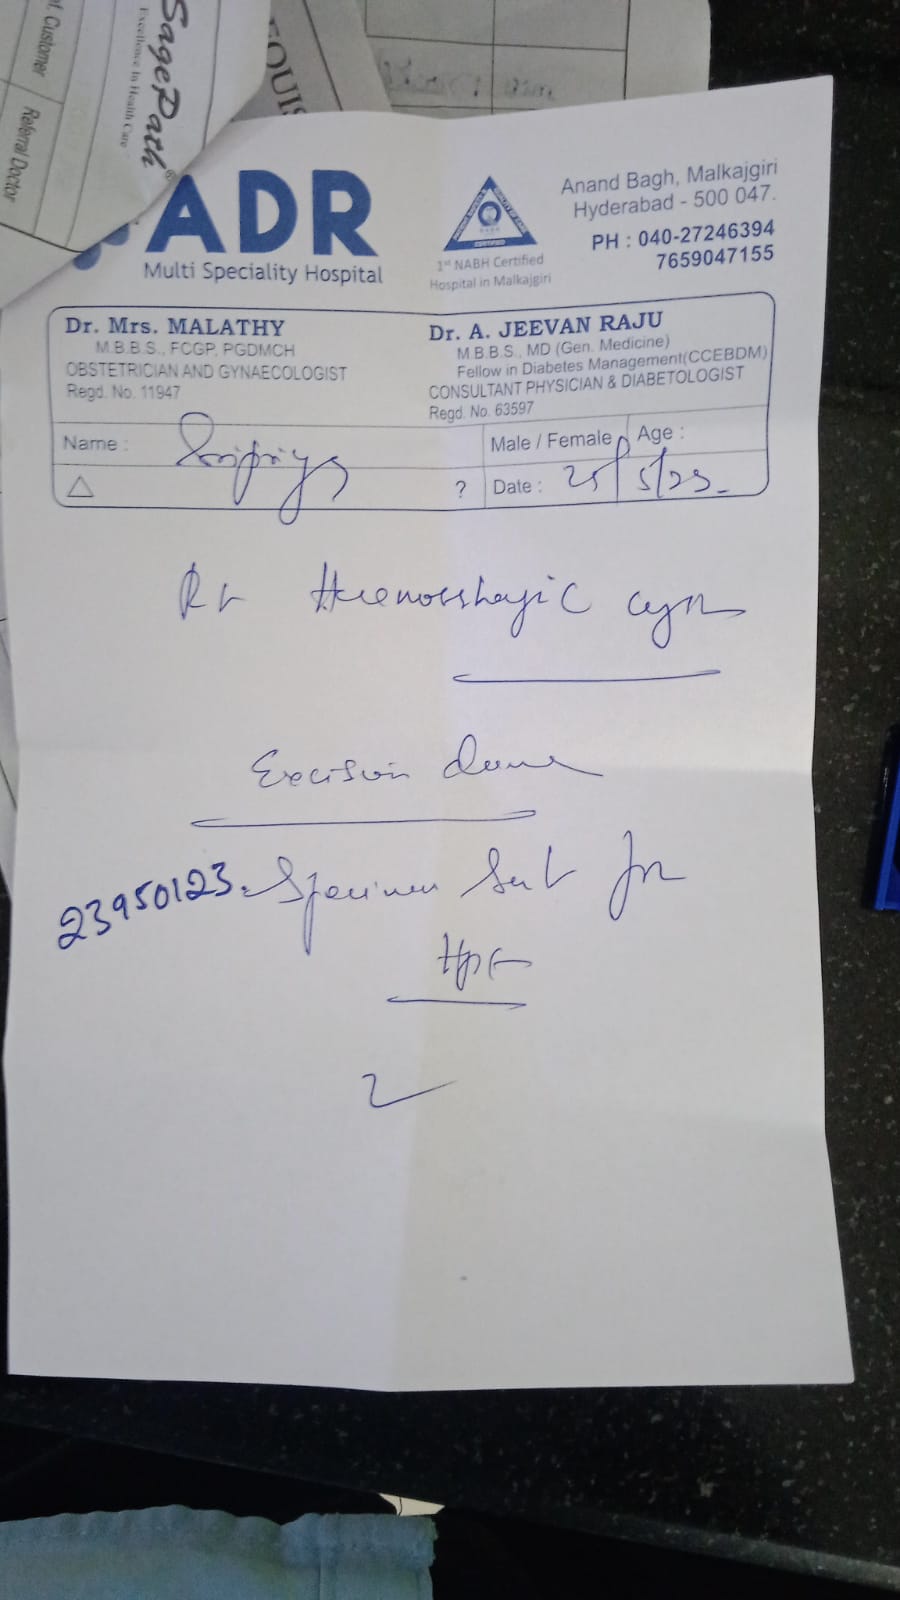 f. Customer
Referral Doctor
SagePath®
Excellence In Health Care
OUIS
ADR
Multi Speciality Hospital
CERTIFIED
1st NABH Certified
Hospital in Malkajgiri
Anand Bagh, Malkajgiri
Hyderabad - 500 047.
PH : 040-27246394
7659047155
Dr. Mrs. MALATHY
M.B.B.S., FCGP, PGDMCH
OBSTETRICIAN AND GYNAECOLOGIST
Regd. No. 11947
Dr. A. JEEVAN RAJU
M.B.B.S., MD (Gen. Medicine)
Fellow in Diabetes Management(CCEBDM)
CONSULTANT PHYSICIAN & DIABETOLOGIST
Regd. No. 63597
Name : Sripriya
Male / Female Age :
△ ? Date : 25/5/23
Rt Haemorrhagic cyst
Excision done
23950123. Specimen sent for
HPE